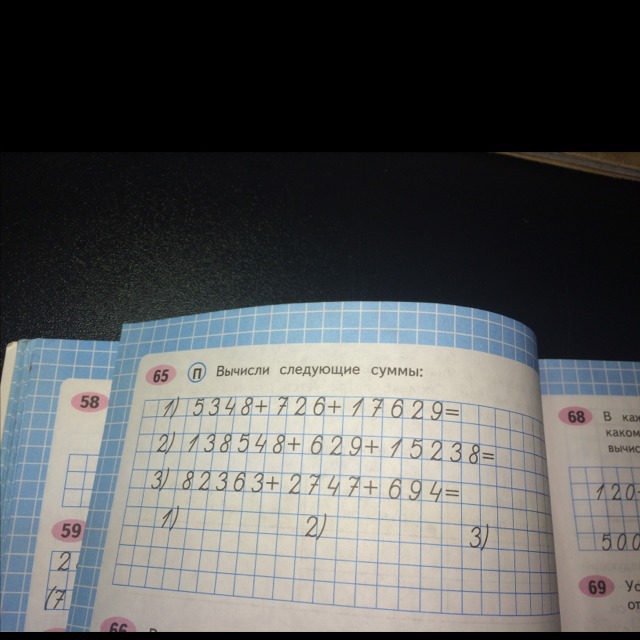 65 П Вычисли следующие суммы:
1) 5348+726+17629=
2) 138548+629+15238=
3) 82363+2747+694=
1) 2) 3)
58
59
2
(7
66
68 В
каком
вычис
120
500
69 Ус
от